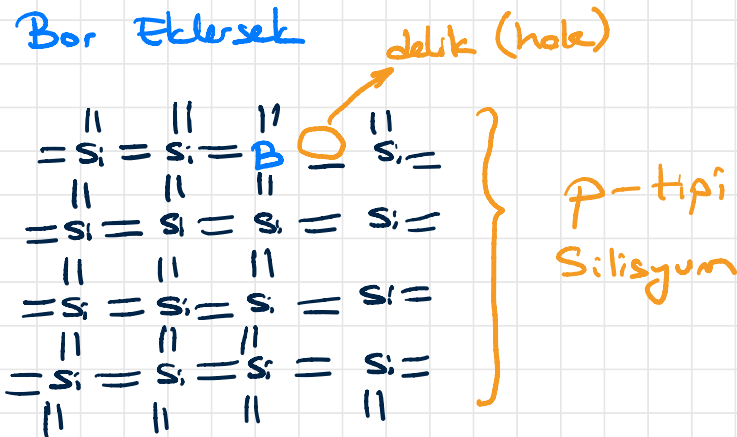 Bor Eklersek
delik (hole)
Si Si B Si
Si Si Si Si
Si Si Si Si
Si Si Si Si
p-tipi
Silisyum